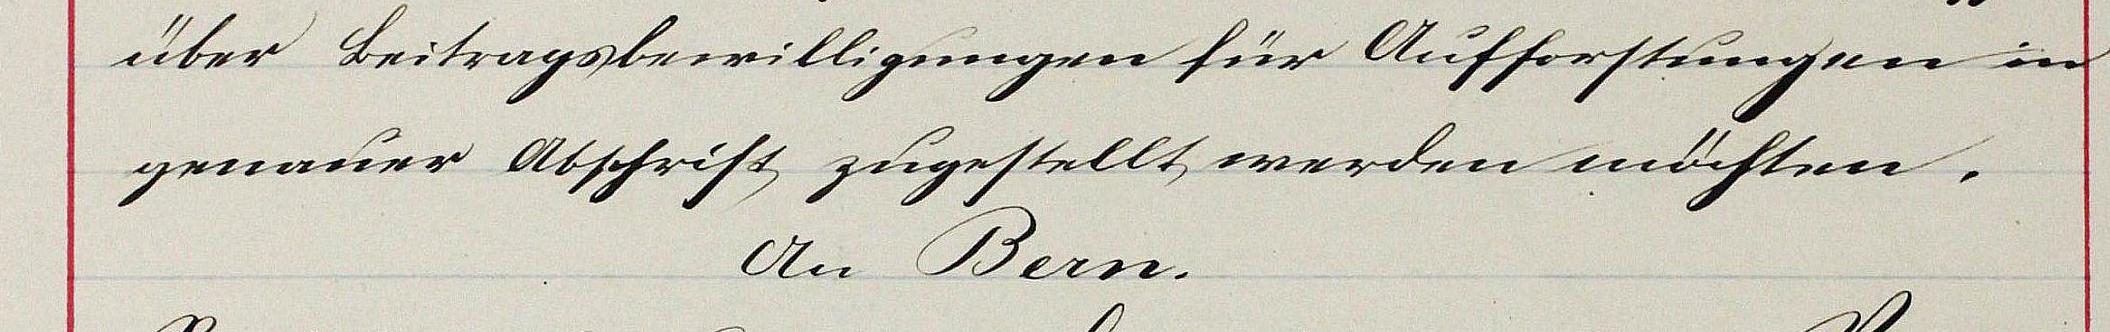 über Beitragsbewilligungen für Aufforstungen in
genauer Abschrift zugestellt werden möchten.
An Bern.